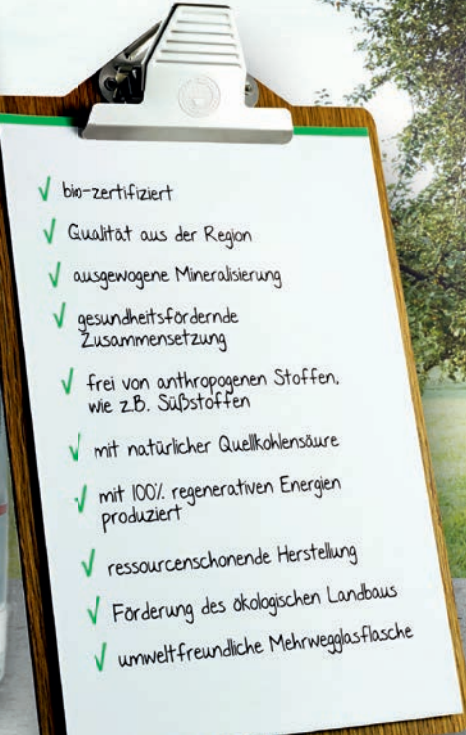 √ bio-zertifiziert
√ Qualität aus der Region
√ ausgewogene Mineralisierung
√ gesundheitsfördernde
Zusammensetzung
√ frei von anthropogenen Stoffen,
wie z.B. Süßstoffen
√ mit natürlicher Quellkohlensäure
√ mit 100% regenerativen Energien
produziert
√ ressourcenschonende Herstellung
√ Förderung des ökologischen Landbaus
√ umweltfreundliche Mehrwegglasflasche